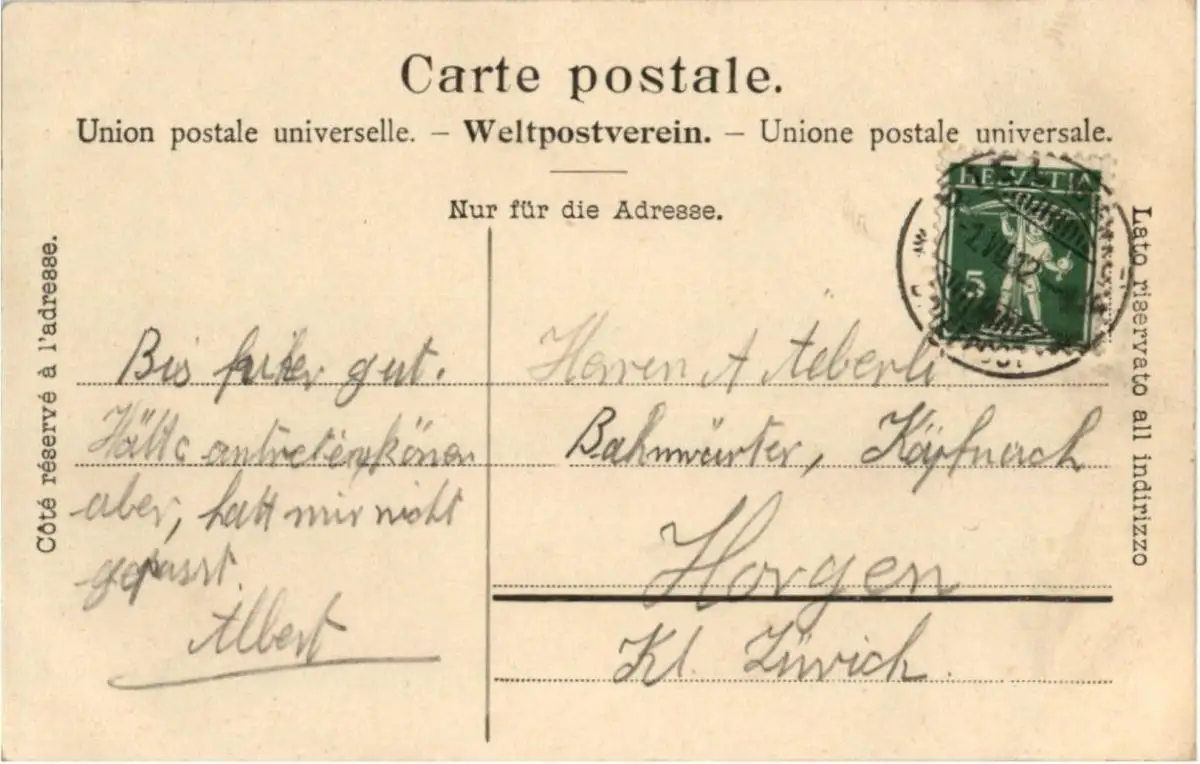 Carte postale.
Union postale universelle. – Weltpostverein. – Unione postale universale.
Nur für die Adresse.
Côté réservé à l'adresse.
Lato riservato all indirizzo
HELVETIA
5
Bis gut.
Hätte antreten können
aber, hatt mir nicht
gepasst.
Albert
Herren A Aeberli
Bahnwärter, Käpfnach
Horgen
Kt. Zürich.